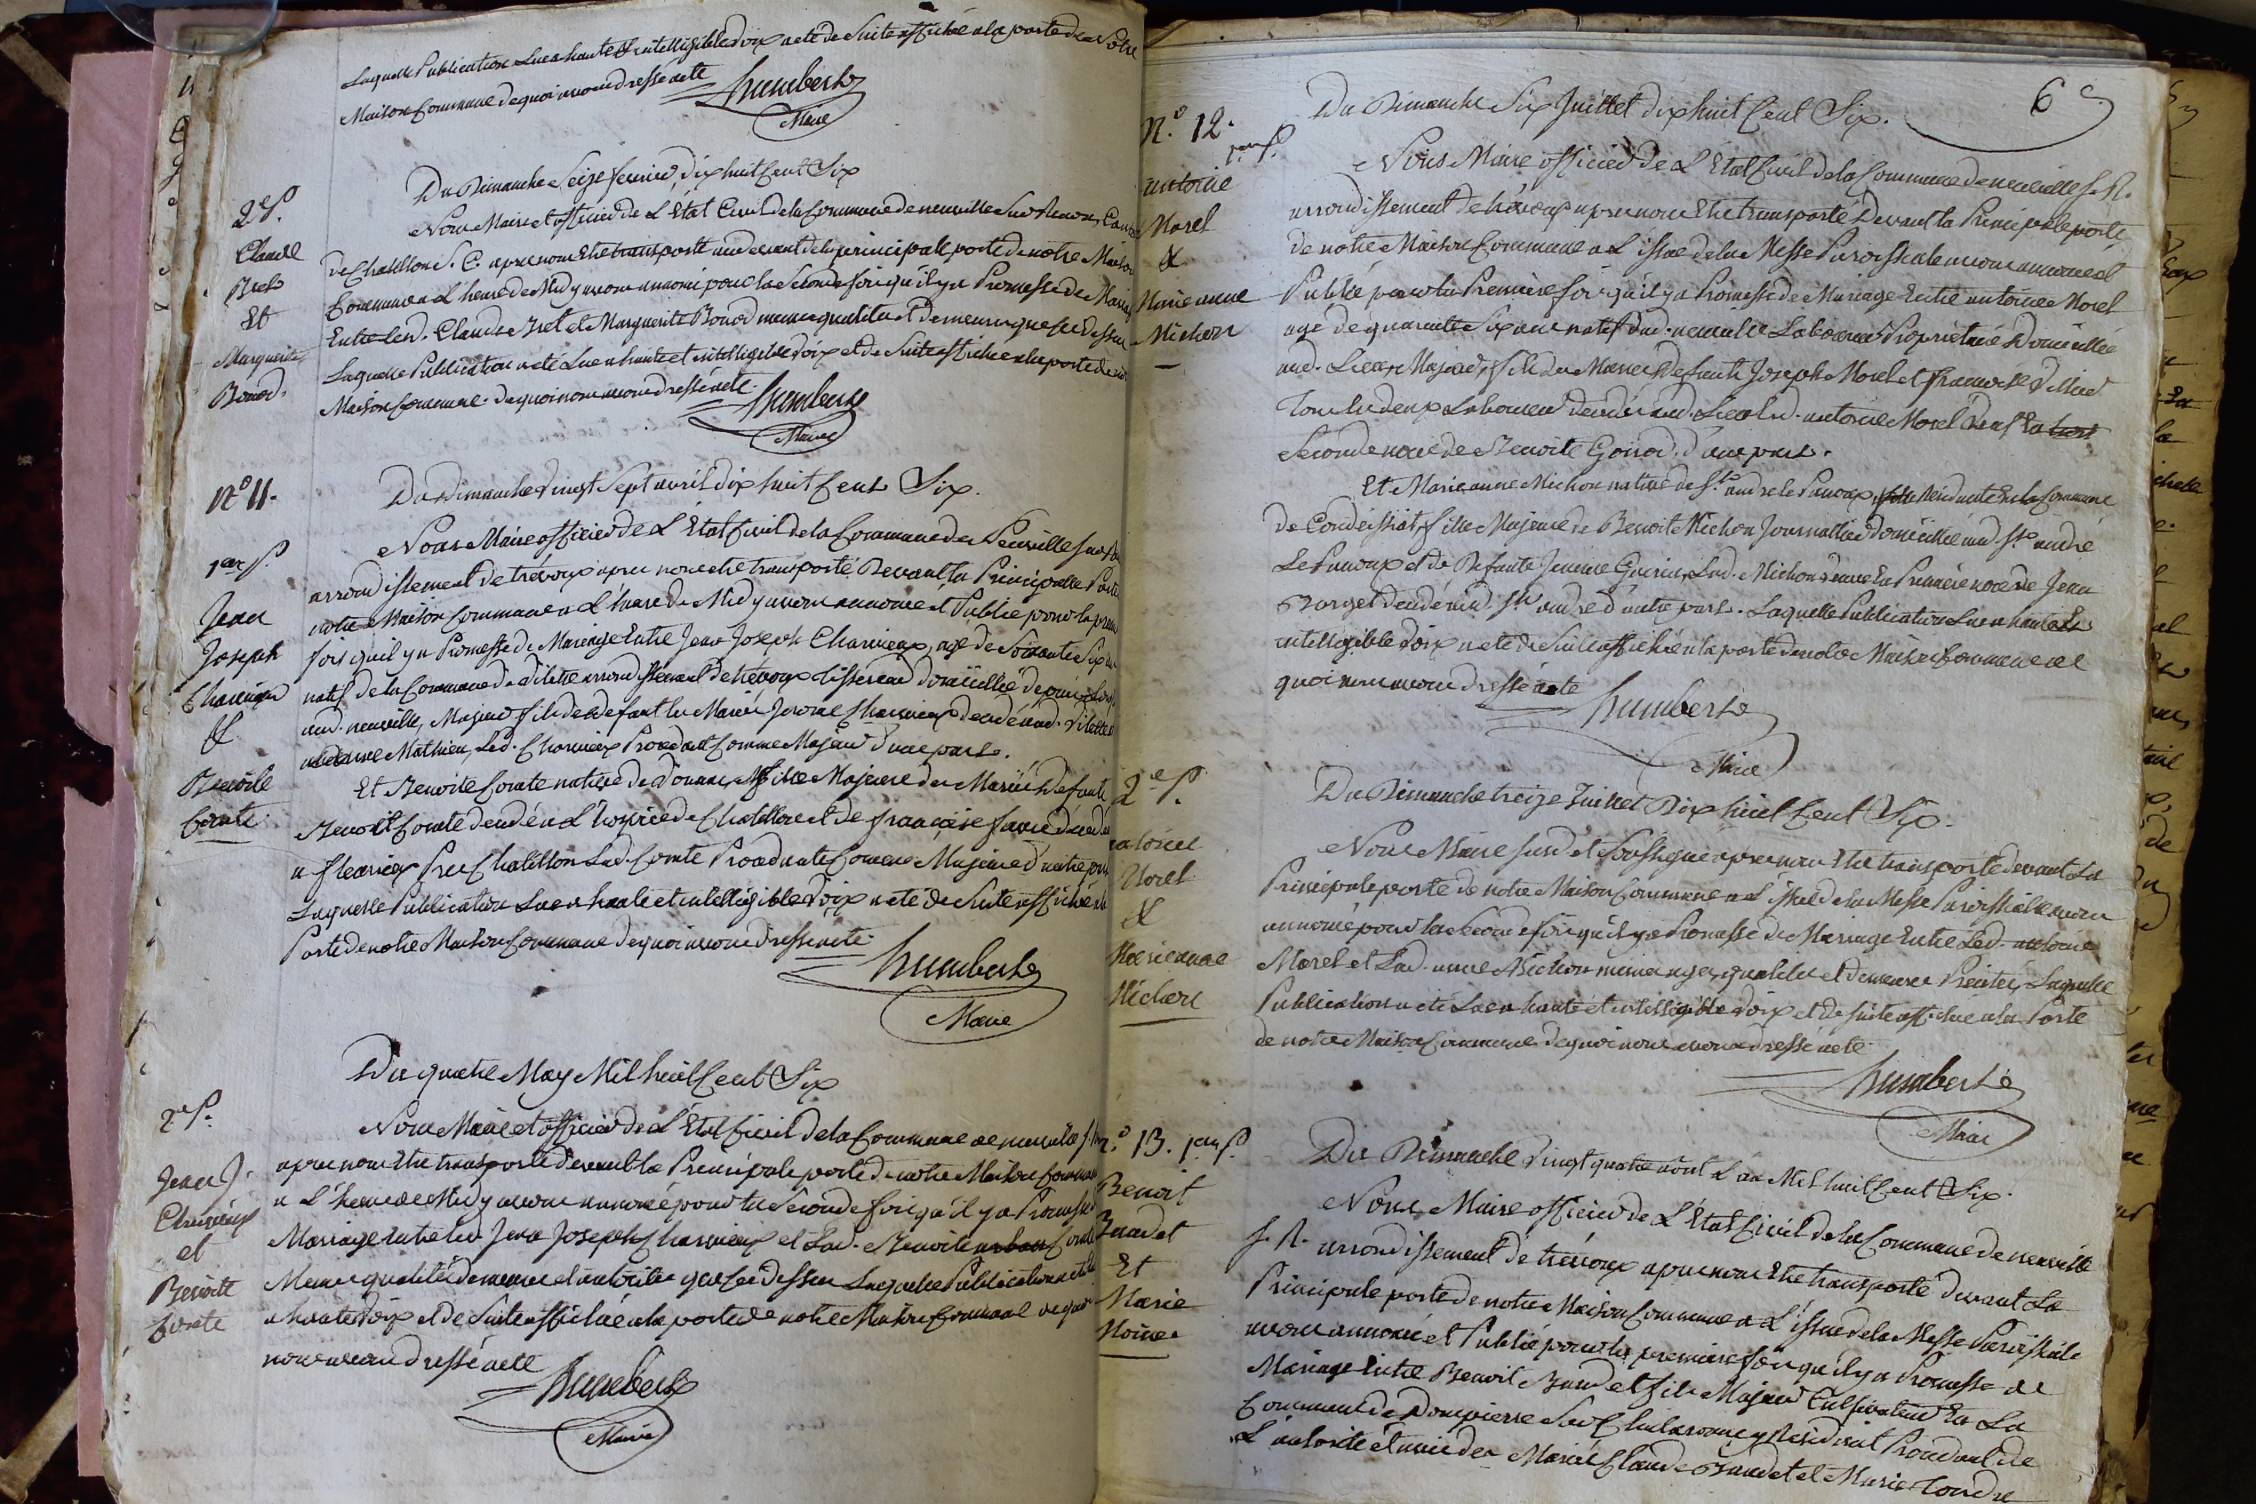 Laquelle Publication Lue a haute et intelligible voix a eté de Suite affichée a la porte de Notre
Maison Commune de quoi avons dressé acte
humbert
Maire
Du Dimanche Seize fevrier, dix huit Cent Six
2e P.
Claude
Et
Marguerite
Nous Maire et officier de L'Etat Civil de la Commune de neuville Sur Renon, Canton
de Chatillon S. C. apres nous Etre transporté au devant de la principale porte de notre Maison
Commune a L'heure de Midy avons annoncé pour la Seconde fois qu'il y a Promesse de Mariage
Entre Led. Claude et Marguerite même qualité et demeure que ci Dessus
Laquelle Publication a eté Lue a haute et intelligible Voix et de Suite affichée a la porte de
Maison Commune. de quoi nous avons dressé acte.
humbert
Maire
N° 11.
1ere P.
Jean
Joseph
Charvieux
&
Benoite
Comte
Du Dimanche Vingt Sept avril dix huit Cent Six.
Nous Maire officier de L'Etat Civil de la Commune de Neuville Sur
arrondissement de trévoux apres nous etre transporté Devant la Principalle Porte
notre Maison Commune a L'heure de Midy avons annoncé et Publié pour la
fois qu'il y a Promesse de Mariage Entre Jean Joseph Charvieux, agé de Soixante Six
natif de la Commune de Vilette arrondissement de trévoux tisserand domicillié depuis
aud. neuville, Majeur fils de defunt Charvieux decedé aud. Vilette
Mathieu, Led. Charvieux Procedant Comme Majeur d'une part.
Et Benoite Comte native de fille Majeure des Mariés Defunts
Benoit Comte decedé a L'hospice de Chatillon et de françoise
a fleurieux Prés Chatillon Lad. Comte Procedante Comme Majeure d'autre part
Laquelle Publication Lue a haute et intelligible Voix a eté de Suite affichée a la
Porte de notre Maison Commune de quoi avons dressé acte.
humbert
Maire
Du quatre May Mil huit Cent Six
2e P.
Jean J.
Charvieux
et
Benoite
Comte
Nous Maire et officier de L'Etat Civil de la Commune de neuville
apres nous Etre transporté devant La Principale porte de notre Maison Commune
a L'heure de Midy avons annoncé pour la Seconde fois qu'il y a Promesse
Mariage Entre Led. Jean Joseph Charvieux et Lad. Benoite Comte
Même qualité demeure et autorité que ci dessus Laquelle Publication a eté
a haute Voix et de Suite affichée a la porte de notre Maison Commune de quoi
nous avons dressé acte
humbert
Maire
6
N.° 12.
1ere P.
antoine
Morel
&
Marie anne
Michon
Du Dimanche Six Juillet dix huit Cent Six.
Nous Maire officier de L'Etat Civil de la Commune de neuville S. R.
arrondissement de trévoux apres nous Etre transporté Devant la Principale porte
de notre Maison Commune a L'issue de la Messe Paroissiale avons annoncé et
Publié pour la Première fois qu'il y a Promesse de Mariage Entre antoine Morel
agé de quarante Six ans natif dud. neuville Laboureur Proprietaire Domicillié
aud. Lieu, Majeur, fils des Mariés Defunts Joseph Morel et françoise
Tous les deux Laboureurs decedés aud. Lieu led. antoine Morel
Seconde noce de Benoite d'une part.
Et Marie anne Michon native de St. andré le Panoux Résidante En la Commune
de Condeissiat, fille Majeure de Benoit Michon Journallier domicillié aud. St. andré
Le Panoux et de Defunte Jeanne Guerin, Lad. Michon veuve En Premiere noce de Jean
decedé aud. St. andré d'autre part. Laquelle Publication Lue a haute Et
intelligible Voix a eté de Suite affichée a la porte de notre Maison Commune de
quoi nous avons dressé acte
humbert
Maire
2e P.
antoine
Morel
&
Marie anne
Michon
Du Dimanche treize Juillet Dix huit Cent Six.
Nous Maire Susd. et Soussigné apres nous Etre transporté devant La
Principale porte de notre Maison Commune a L'issue de la Messe Paroissialle avons
annoncé pour la Seconde fois qu'il y a Promesse de Mariage Entre Led. antoine
Morel et Lad. anne Michon même age, qualité et demeure Laquelle
Publication a eté Lue a haute et intelligible Voix et de Suite affichée a la Porte
de notre Maison Commune de quoi nous avons dressé acte
humbert
Maire
N.° 13. 1ere P.
Benoit
Baudet
Et
Marie
Moine
Du Dimanche Vingt quatre aout L'an Mil huit Cent Six.
Nous Maire officier de L'Etat Civil de la Commune de neuville
S. R. arrondissement de trévoux apres nous Etre transporté devant La
Principale porte de notre Maison Commune a L'issue de la Messe Paroissiale
avons annoncé et Publié pour la premiere fois qu'il y a Promesse de
Mariage Entre Benoit Baudet fils Majeur Cultivateur En La
Commune de Dompierre Sur Chalaronne y Residant Procedant de
L'autorité et avis des Mariés Claude Baudet et Marie